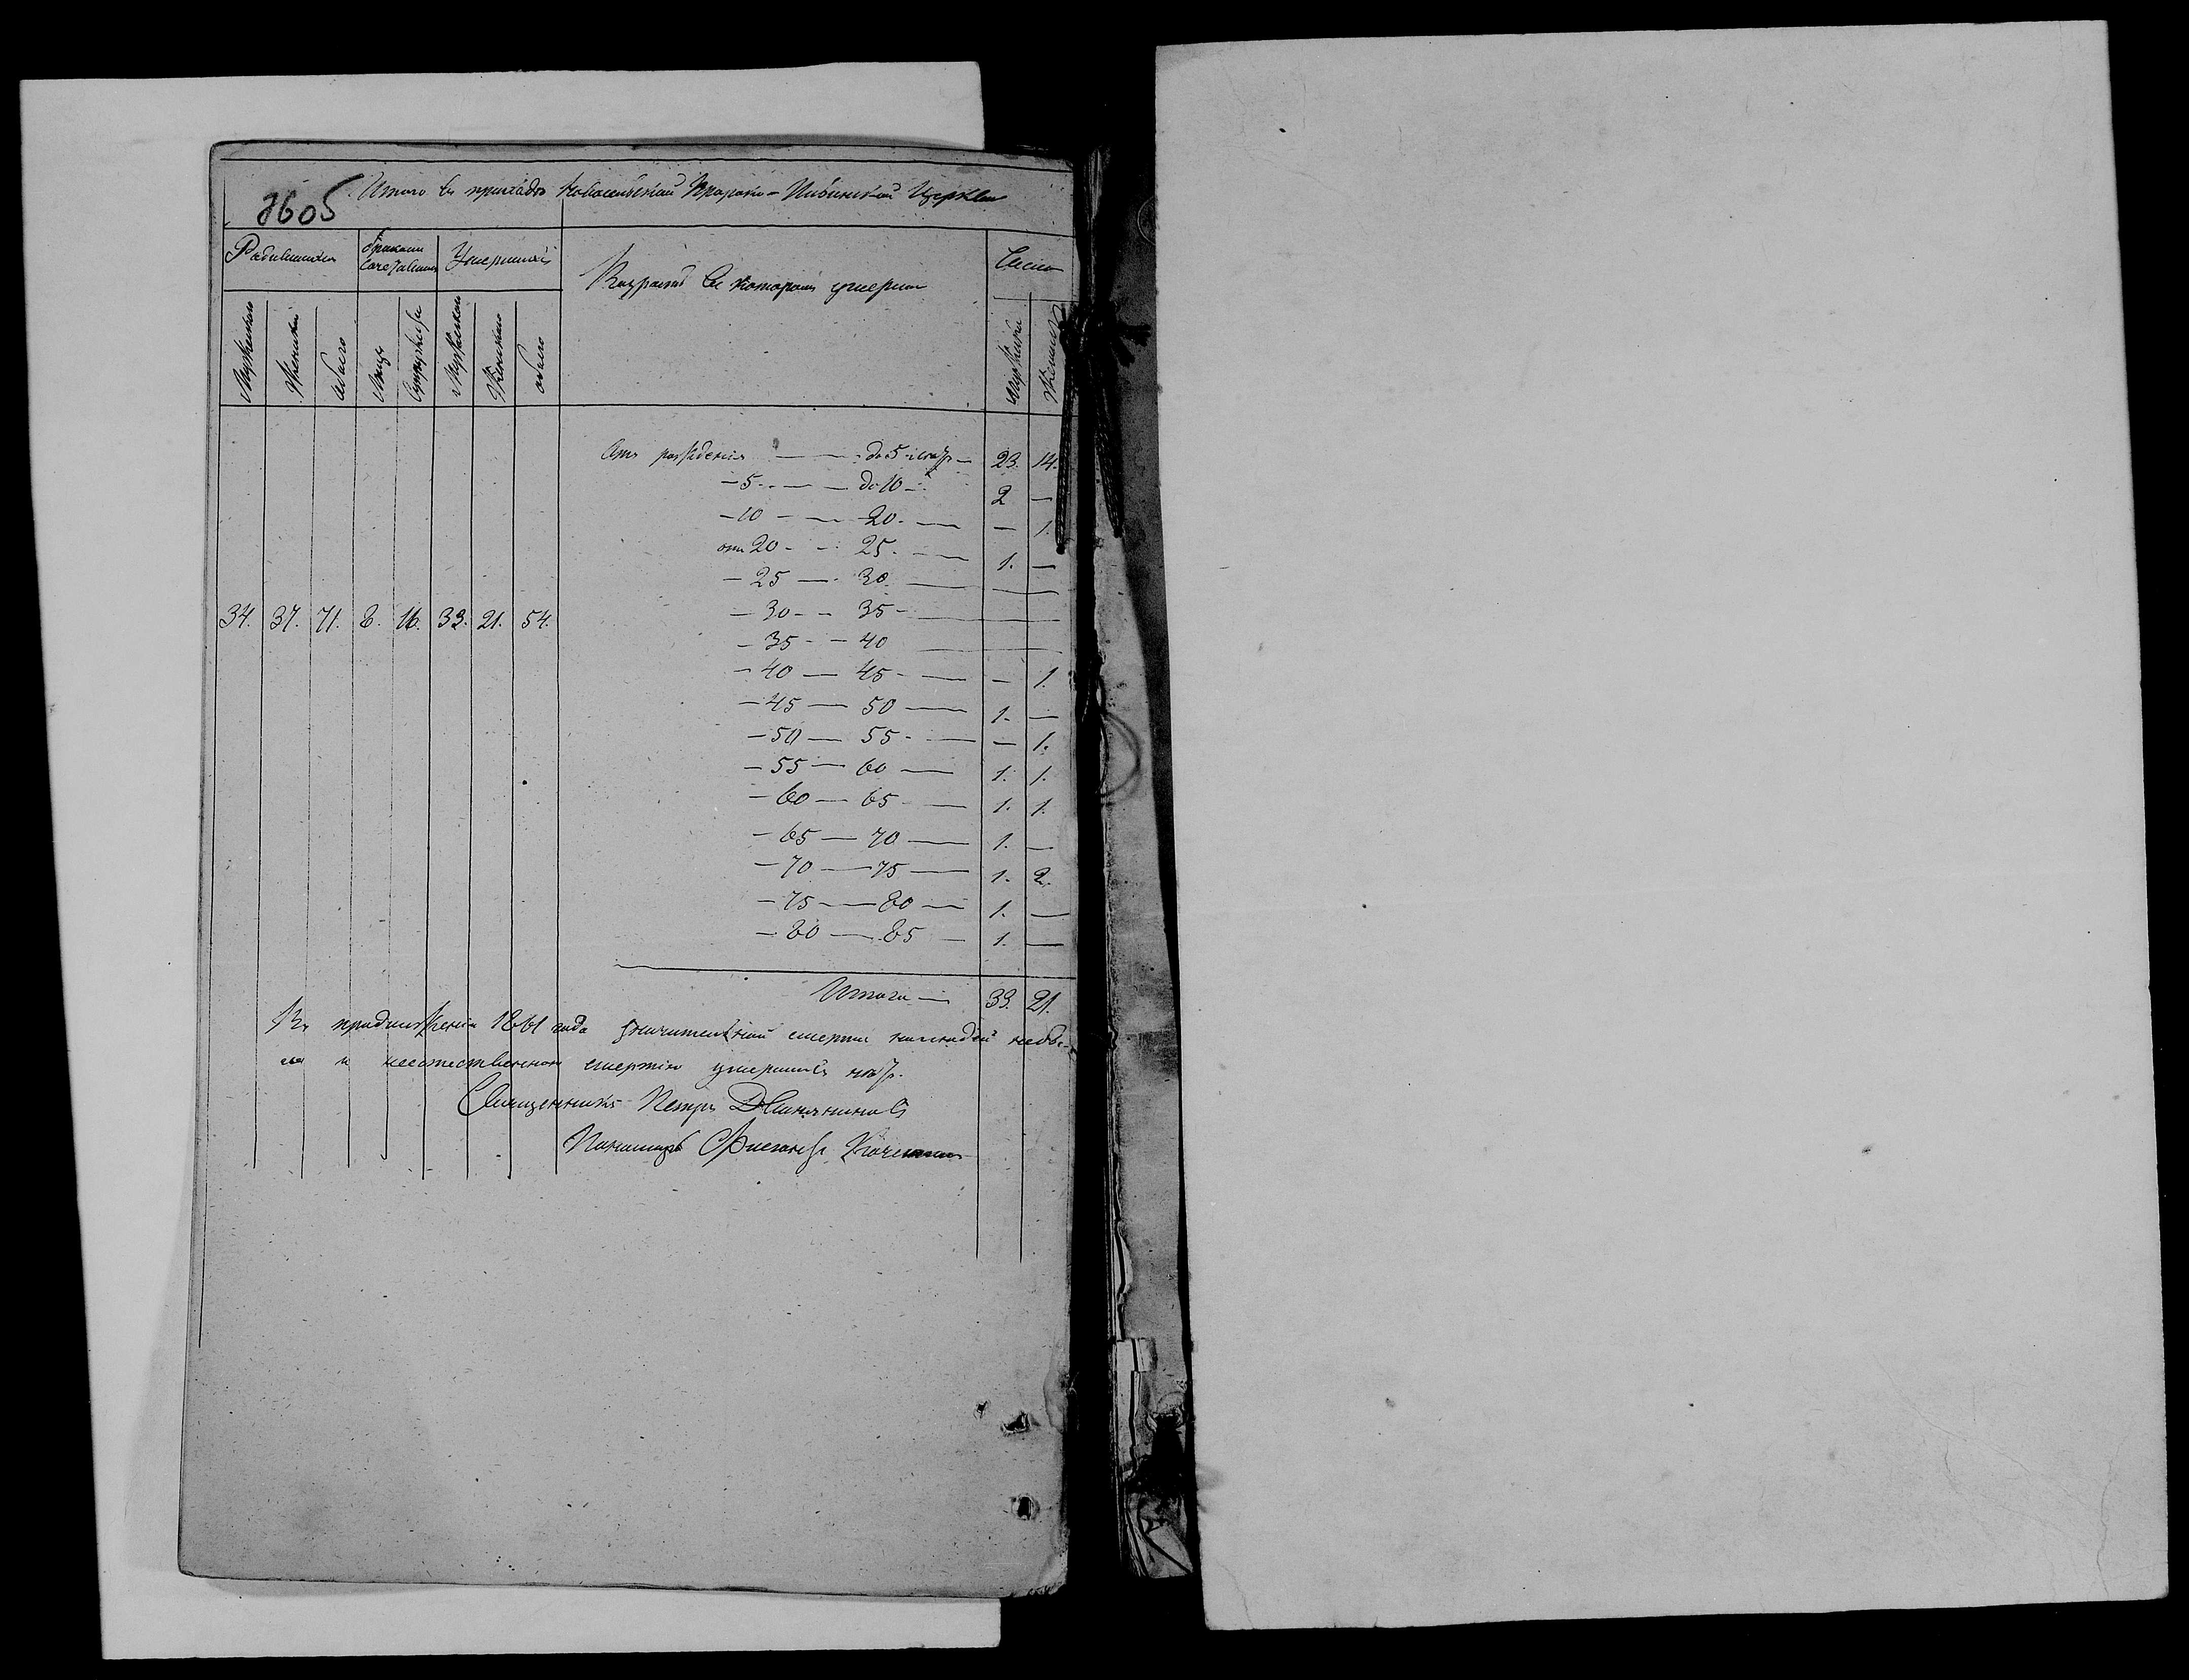 Итого въ приходѣ Пророко-Илiинской Церкви
3605
Родившихся
бракомъ сочетавшихся
Умершихъ
Возрастъ въ которомъ умерли
Число
Мужескаго
Женскаго
обоего
Лицъ
Супружествъ
Мужескаго
Женскаго
обоего
Мужчинъ
Женщинъ
Отъ рожденiя — до 5 лѣтъ — 23. 14.
— 5 — до 10 — 2 —
— 10 — 20 — — 1.
отъ 20 - 25 — 1. —
— 25 — 30 —
34. 37. 71. 8. 16. 33. 21. 54.
— 30 - - 35 —
— 35 - - 40 —
— 40 — 45 — — 1.
— 45 — 50 — 1. —
— 50 — 55 — — 1.
— 55 — 60 — 1. 1.
— 60 — 65 — 1. 1.
— 65 — 70 — 1. —
— 70 — 75 — 1. 2.
— 75 — 80 — 1. —
— 80 — 85 — 1. —
Итого — 33. 21.
Въ продолженiи 1861 года смерти
и неестественною смертiю умершихъ нѣтъ.
Священникъ Петръ Двиняниновъ
Пономарь